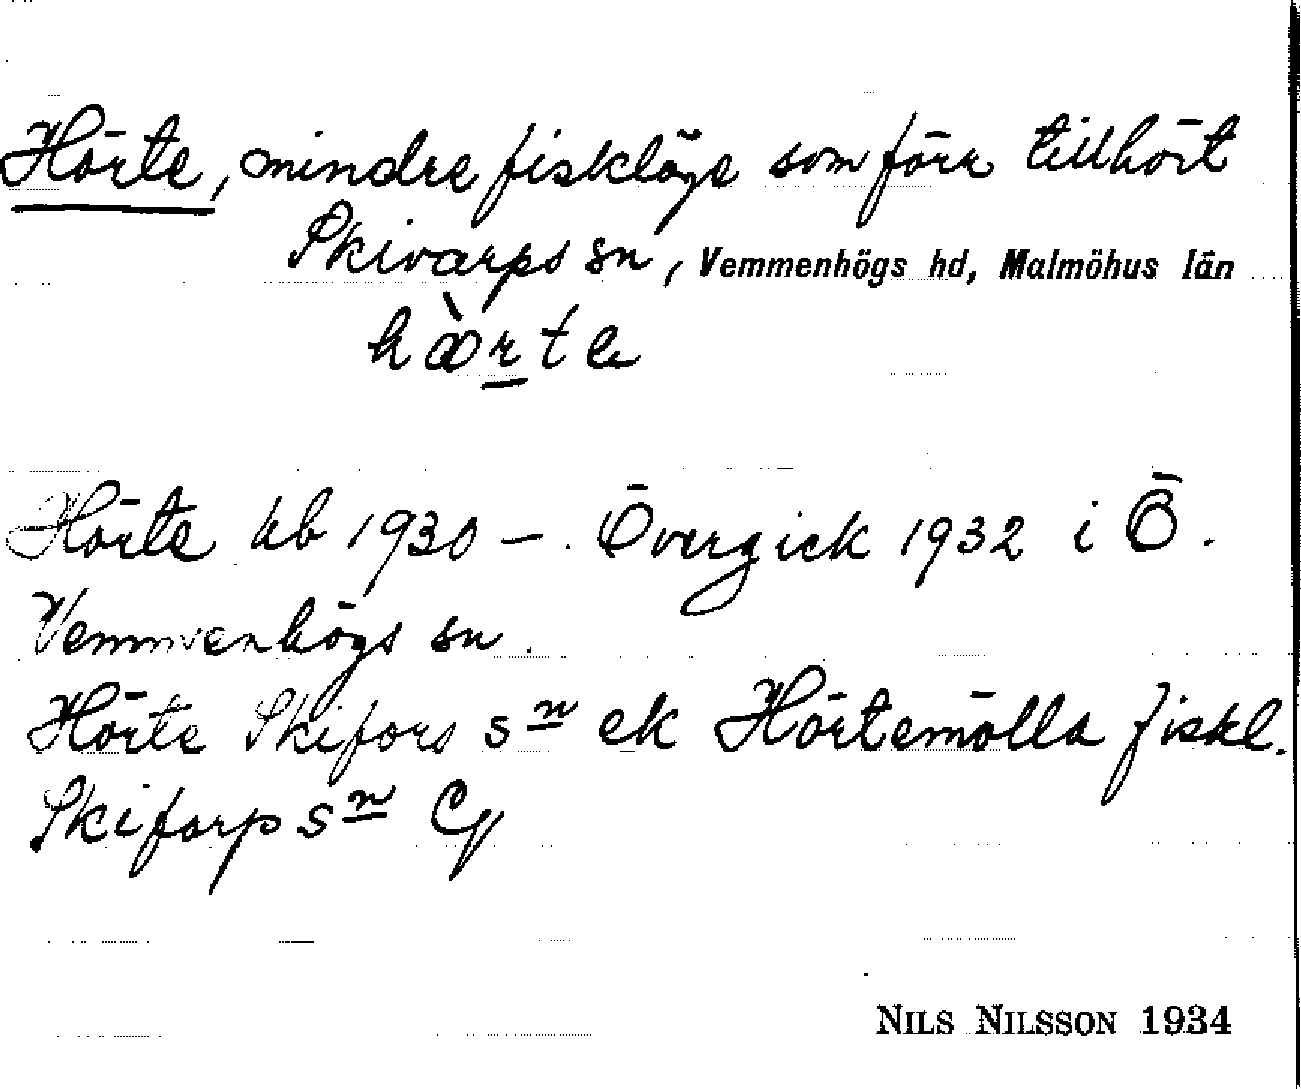 Hörte, mindre fiskläge som förr tillhört
Skivarps sn, Vemmenhögs hd, Malmöhus län
hæ̀rte
Hörte kb 1930 – . Övergick 1932 i Ö.
Vemmenhögs sn.
Hörte Skifors sn ek Hörtemölla fiskl.
Skifarp sn
NILS NILSSON 1934